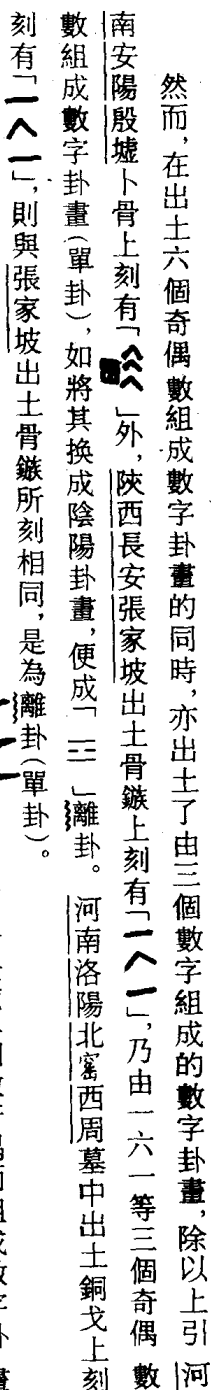 然而，在出土六個奇偶數組成數字卦畫的同時，亦出土了由三個數字組成的數字卦畫，除以上引河
南安陽殷墟卜骨上刻有「」外，陝西長安張家坡出土骨鏃上刻有「一∧一」，乃由一六一等三個奇偶數
數組成數字卦畫（單卦），如將其換成陰陽卦畫，便成「☲」離卦。河南洛陽北窰西周墓中出土銅戈上刻
刻有「一∧一」，則與張家坡出土骨鏃所刻相同，是為離卦（單卦）。